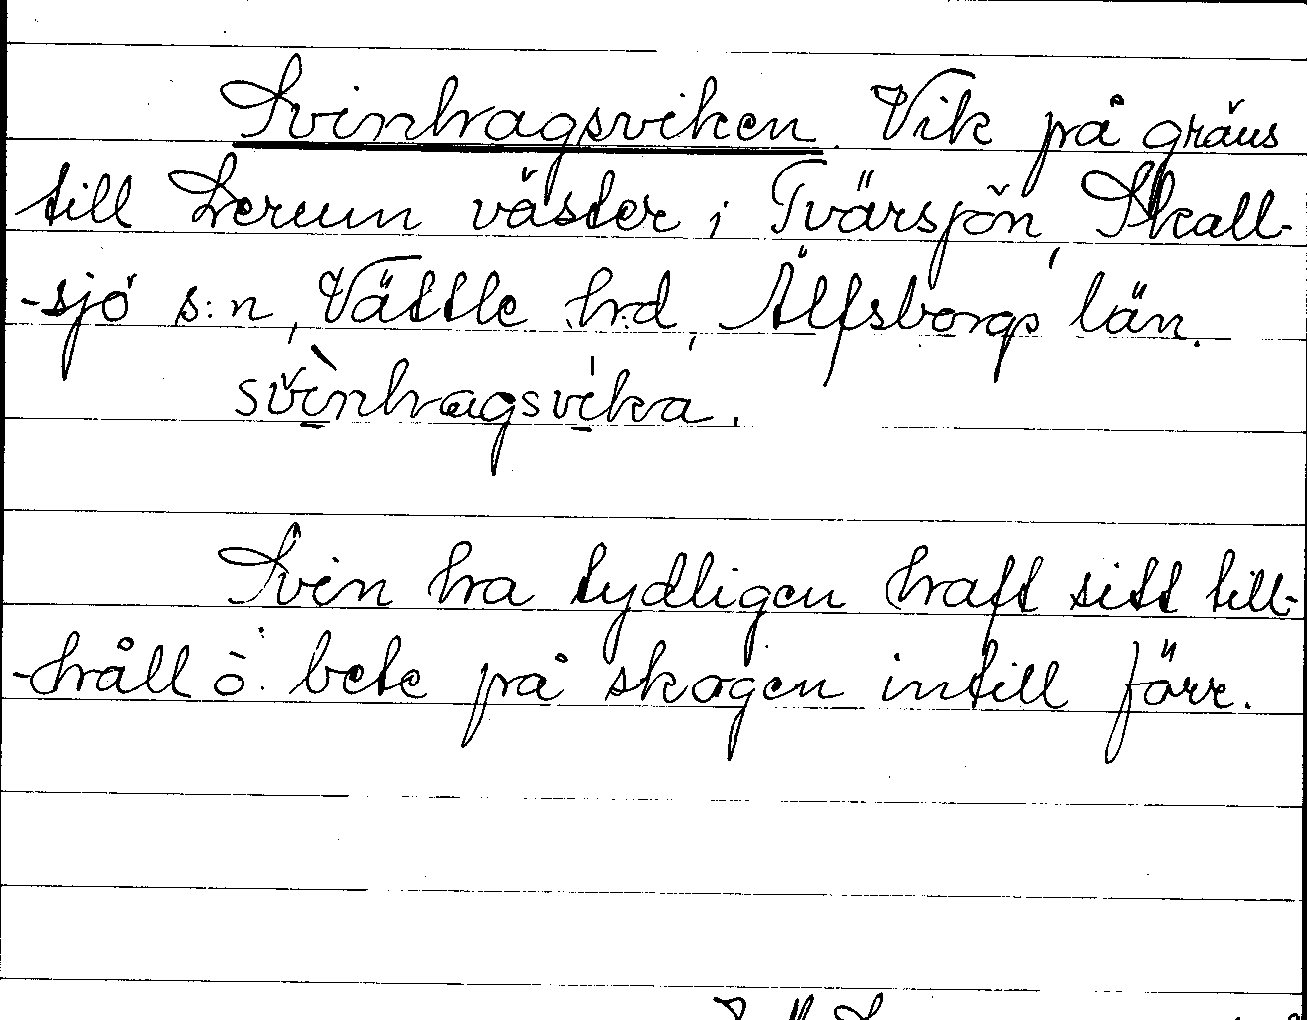 Svinhagsviken. Vik på gräns
till Lerum väster i Tvärsjön, Skall-
-sjö s:n, Vättle h:d, Älfsborgs län.
svìnhagsvika.
Svin ha tydligen haft sitt till-
-håll o. bete på skogen intill förr.